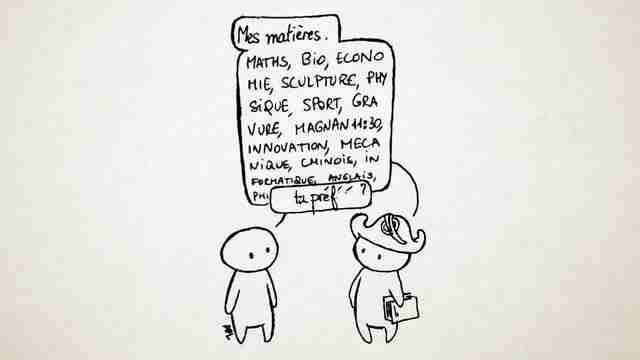 Mes matières.
MATHS, BIO, ECONO
MIE, SCULPTURE, PHY
SIQUE, SPORT, GRA
VURE, MAGNAN 11:30,
INNOVATION, MECA
NIQUE, CHINOIS, IN
FORMATIQUE, ANGLAIS,
PHI
ta préf' ?